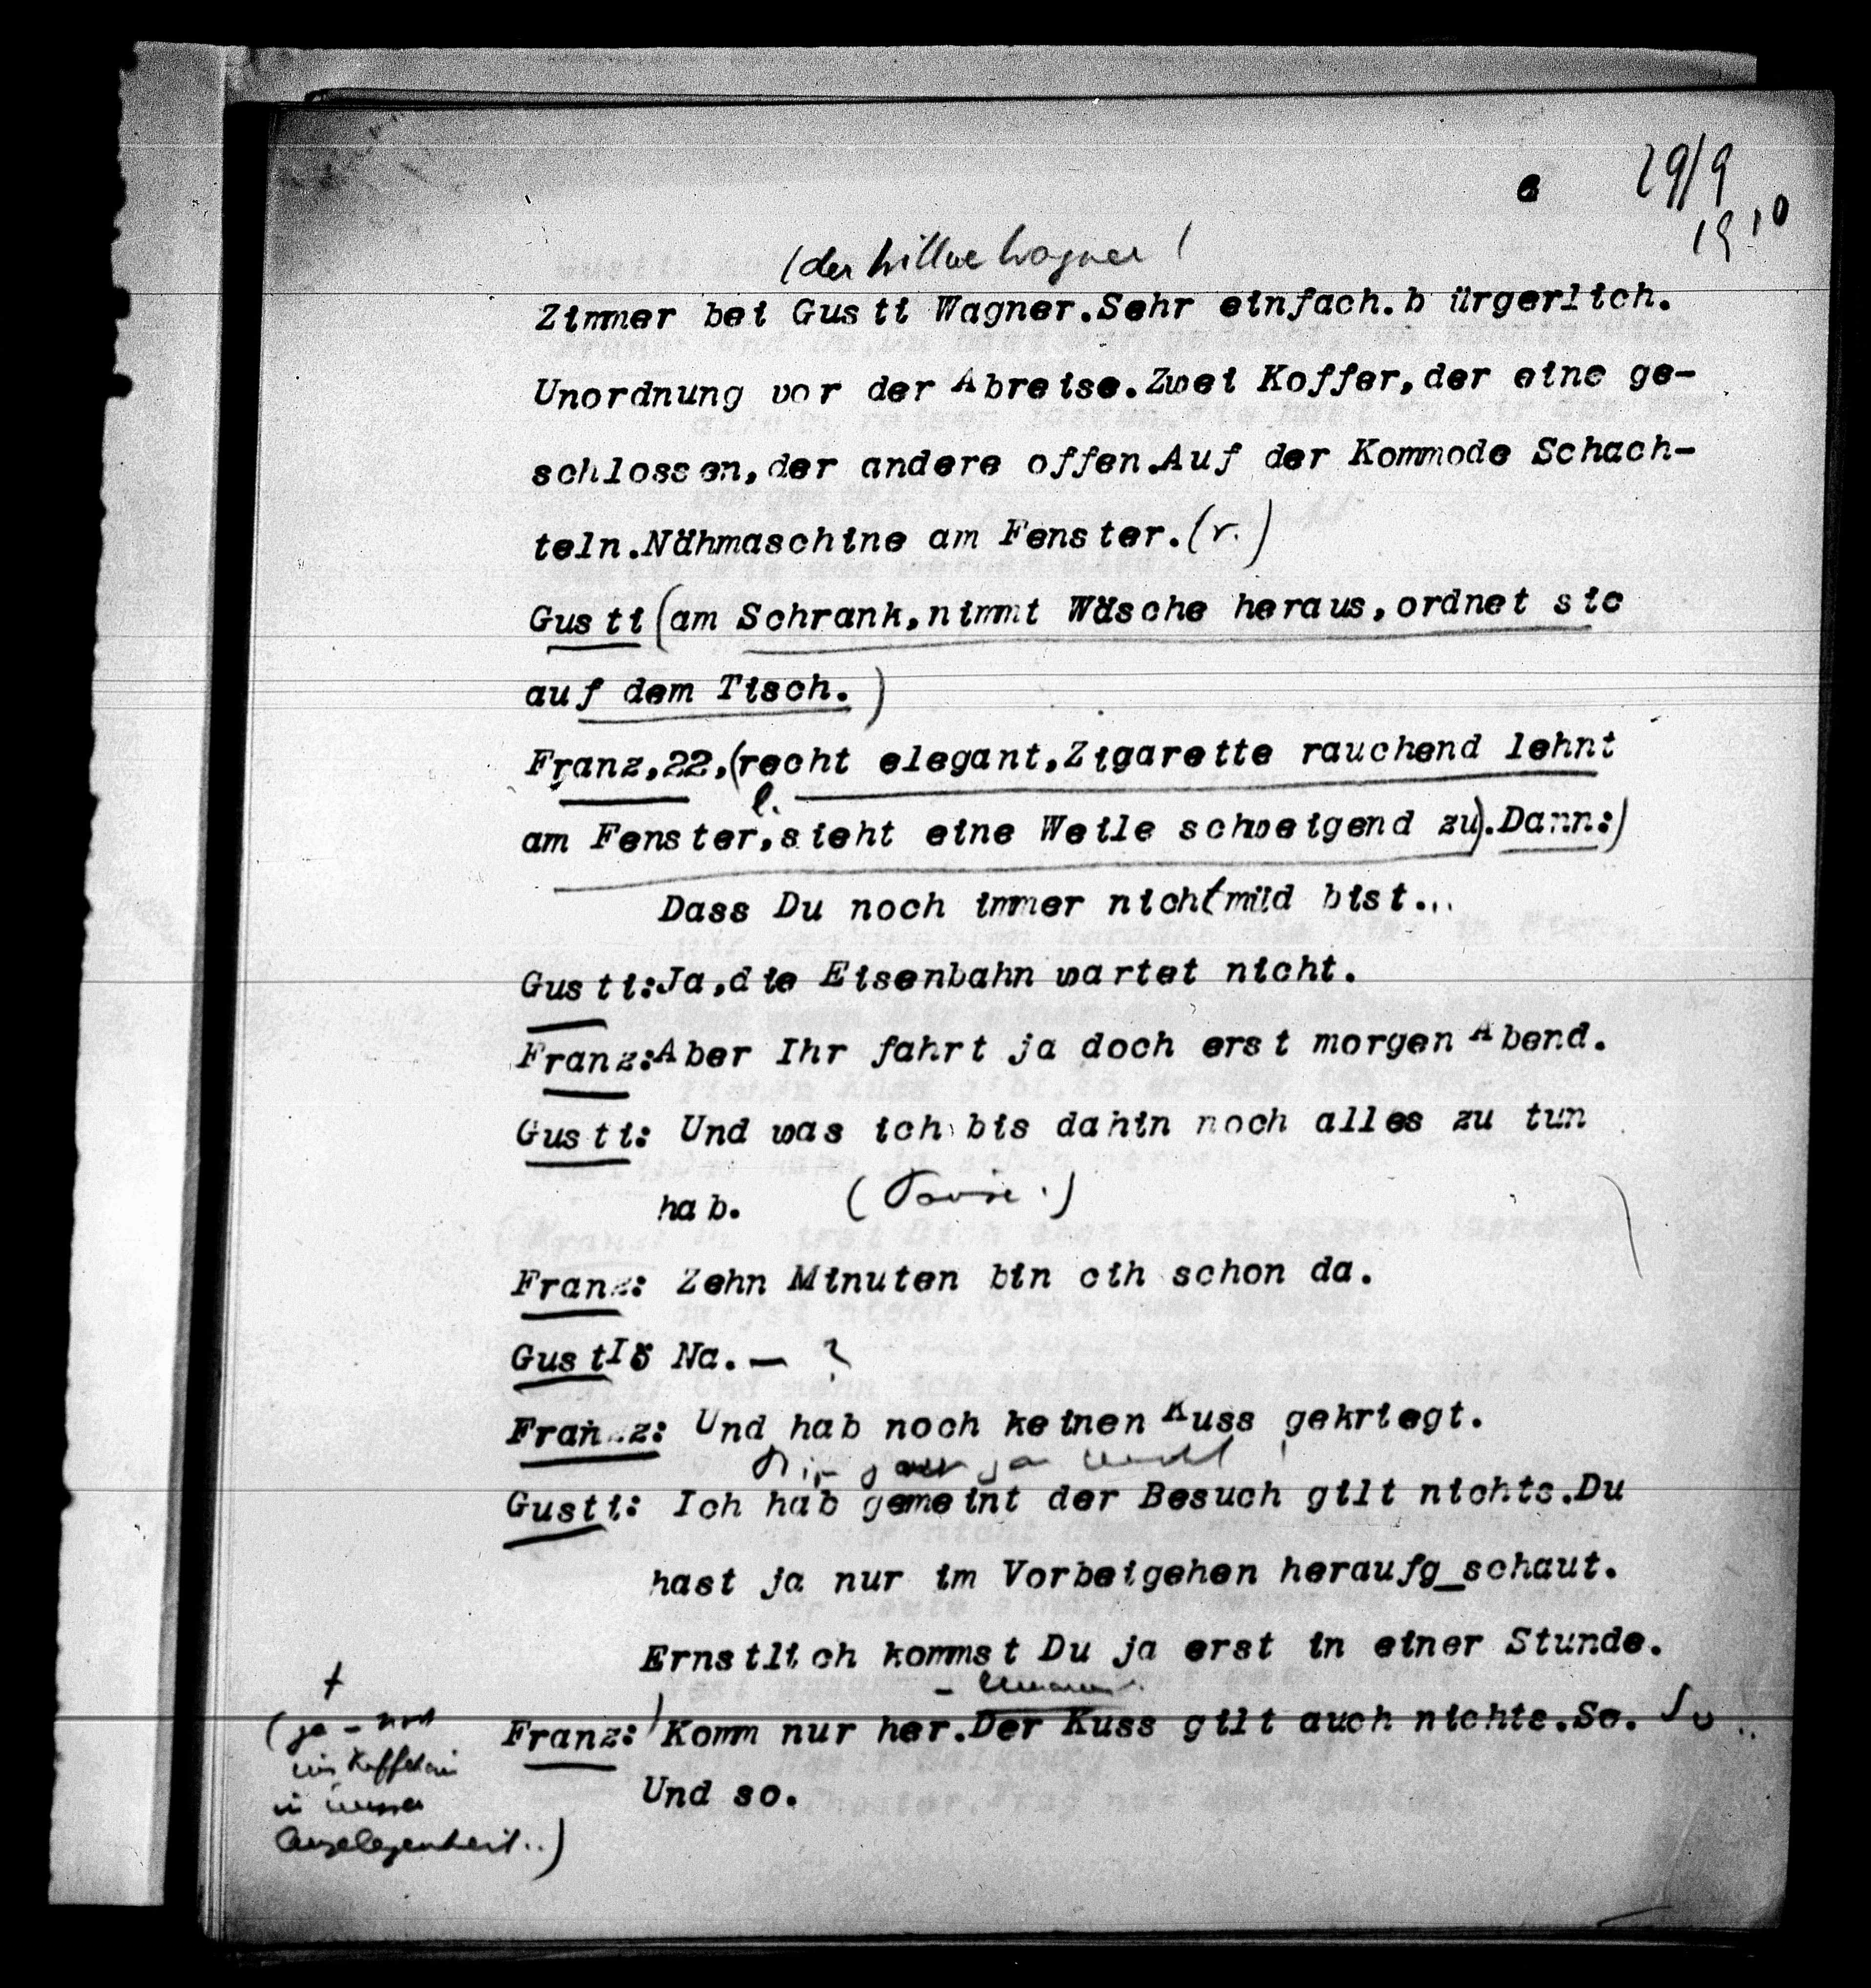 29/9
19 10
(der Witwe Wagner)
Zimmer bei Gusti Wagner.Sehr einfach.b ürgerlich.
Unordnung vor der Abreise.Zwei Koffer,der eine ge-
schlossen,der andere offen.Auf der Kommode Schach-
teln.Nähmaschine am Fenster.(r.)
Gusti (am Schrank,nimmt Wäsche heraus,ordnet sie
auf dem Tisch.)
Franz,22,(recht elegant,Zigarette rauchend lehnt
l.
am Fenster,sieht eine Weile schweigend zu).Dann:)
Dass Du noch immer nicht müd bist...
Gusti:Ja,die Eisenbahn wartet nicht.
Franz:Aber Ihr fahrt ja doch erst morgen Abend.
Gusti: Und was ich bis dahin noch alles zu tun
hab. (Pause.)
Franz: Zehn Minuten bin cih schon da.
GustIö Na.— ?
Franz: Und hab noch keinen Kuss gekriegt.
Gusti: Ich hab gemeint der Besuch gilt nichts.Du
hast ja nur im Vorbeigehen heraufg_schaut.
Ernstlich kommst Du ja erst in einer Stunde.
Franz: Komm nur her.Der Kuss gilt auch nichts.So. So ..
Und so.
(ja - noch
in
Angelegenheit..)